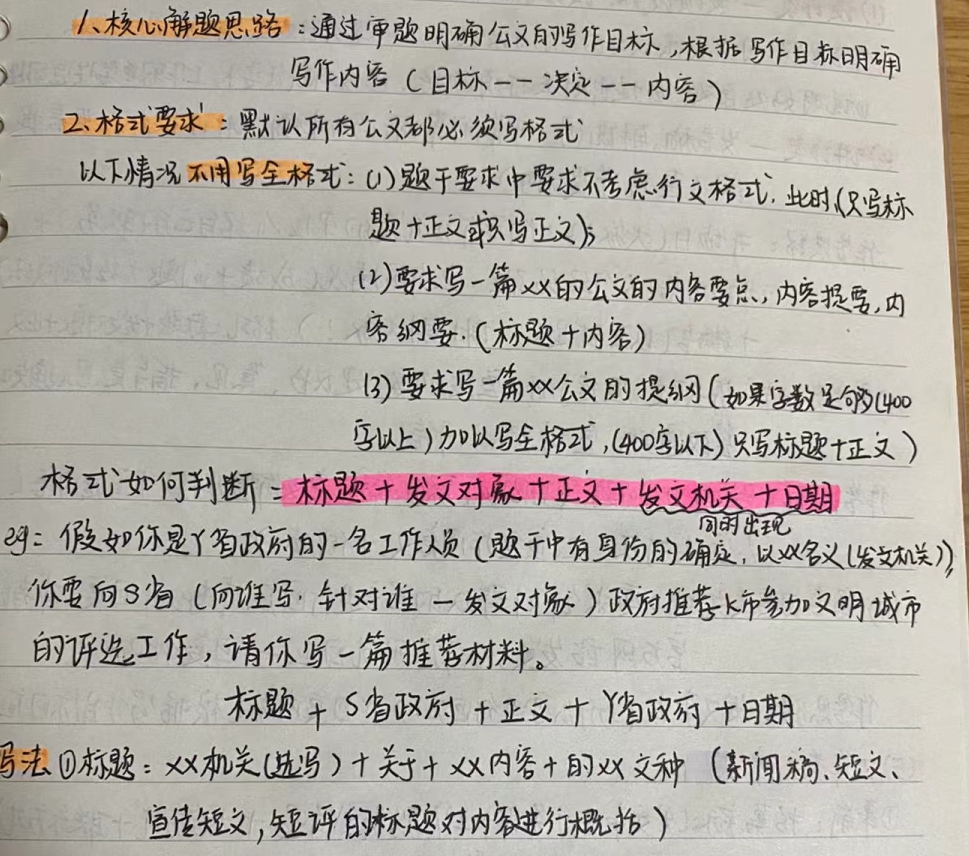 1、核心解题思路：通过审题明确公文的写作目标，根据写作目标明确
写作内容（目标一一决定一一内容）
2、格式要求：默认所有公文都必须写格式
以下情况不用写全格式：(1)题干要求中要求不考虑行文格式，此时（只写标
题+正文或只写正文）；
(2)要求写一篇xx的公文的内容要点，内容提要，内
容纲要.（标题+内容）
(3)要求写一篇xx公文的提纲（如果字数足够（400
字以上）加以写全格式，（400字以下）只写标题+正文）
格式如何判断：标题+发文对象+正文+发文机关+日期
同时出现
例：假如你是Y省政府的一名工作人员（题干中有身份的确定，以xx名义（发文机关）），
你要向S省（向谁写，针对谁一发文对象）政府推荐K市参加文明城市
的评选工作，请你写一篇推荐材料。
标题+S省政府+正文+Y省政府+日期
写法①标题：xx机关（选写）+关于+xx内容+的xx文种（新闻稿、短文、
宣传短文，短评的标题对内容进行概括）